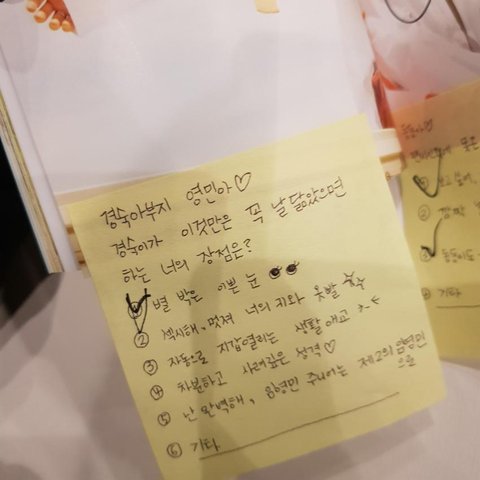 경숙아부지 영민아♡
경숙이가 이것만은 꼭 날 닮았으면
하는 너의 장점은?
① 별 박은 이쁜 눈
② 섹시해, 멋져 너의 지와 옷발
③ 자동으로 지갑열리는 생활 애교
④ 차분하고 사려깊은 성격♡
⑤ 난 완벽해, 음영민 주니어는 제2의 음영민
으로
⑥ 기타
②
④ 기타